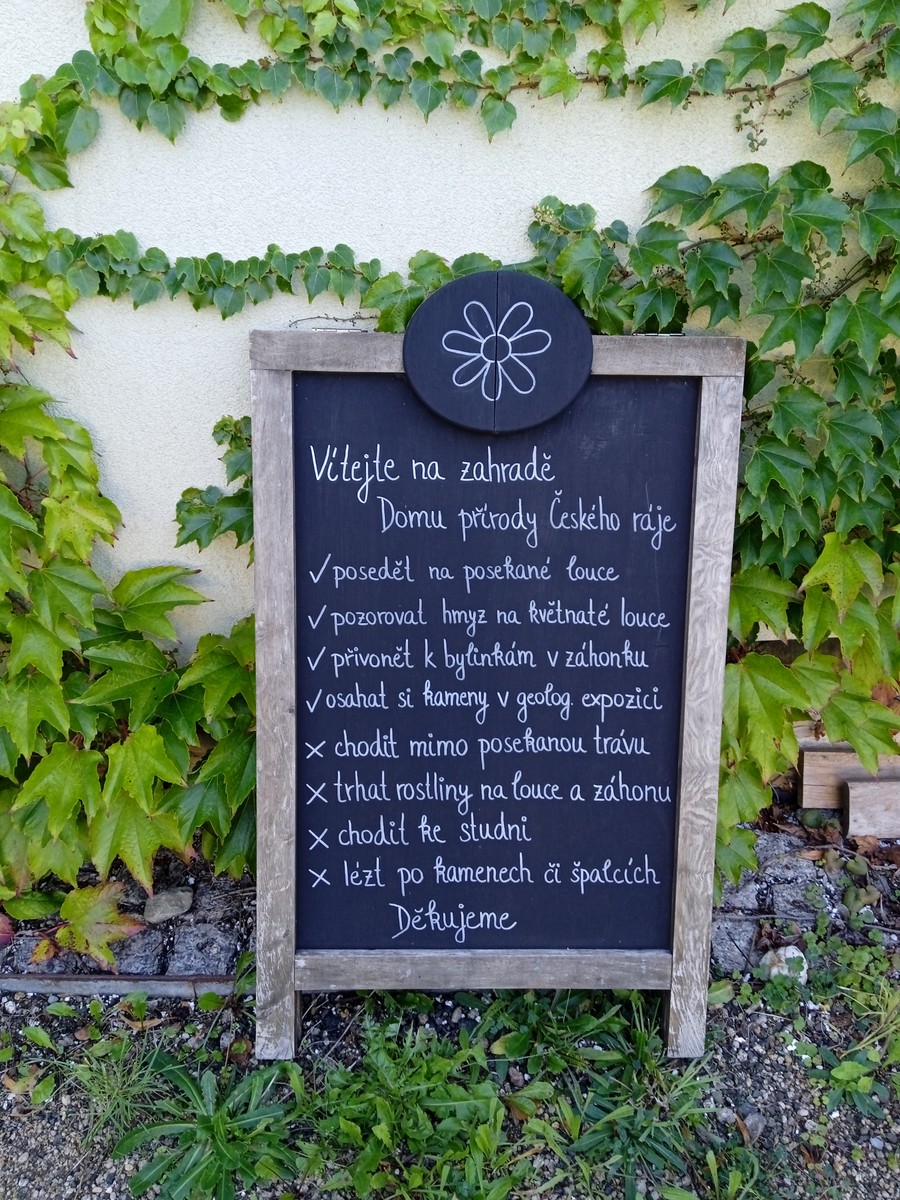 Vítejte na zahradě
Domu přírody Českého ráje
✓ posedět na posekané louce
✓ pozorovat hmyz na květnaté louce
✓ přivonět k bylinkám v záhonku
✓ osahat si kameny v geolog. expozici
× chodit mimo posekanou trávu
× trhat rostliny na louce a záhonu
× chodit ke studni
× lézt po kamenech či špalcích
Děkujeme